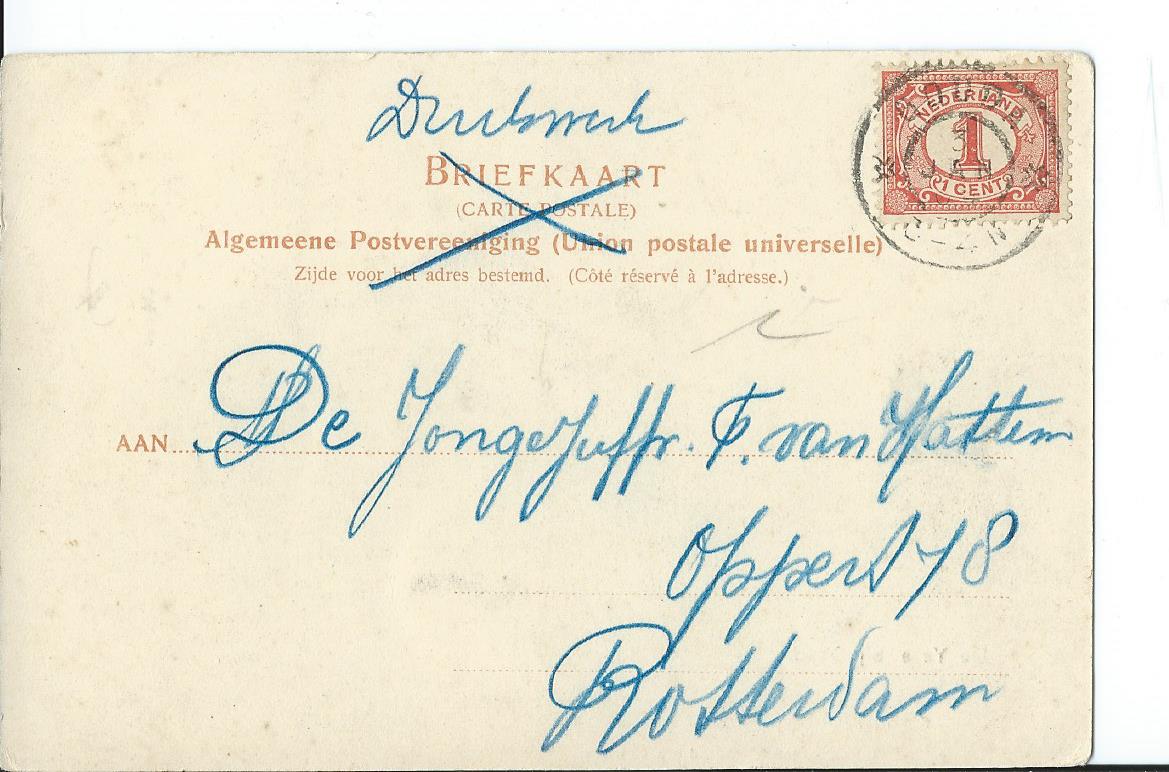 Drukwerk
NEDERLAND
1
1 CENT
JAN
BRIEFKAART
(CARTE POSTALE)
Algemeene Postvereeniging (Union postale universelle)
Zijde voor het adres bestemd. (Côté réservé à l'adresse.)
AAN De Jongejuffr. F. van Hattem
Oppert 78
Rotterdam